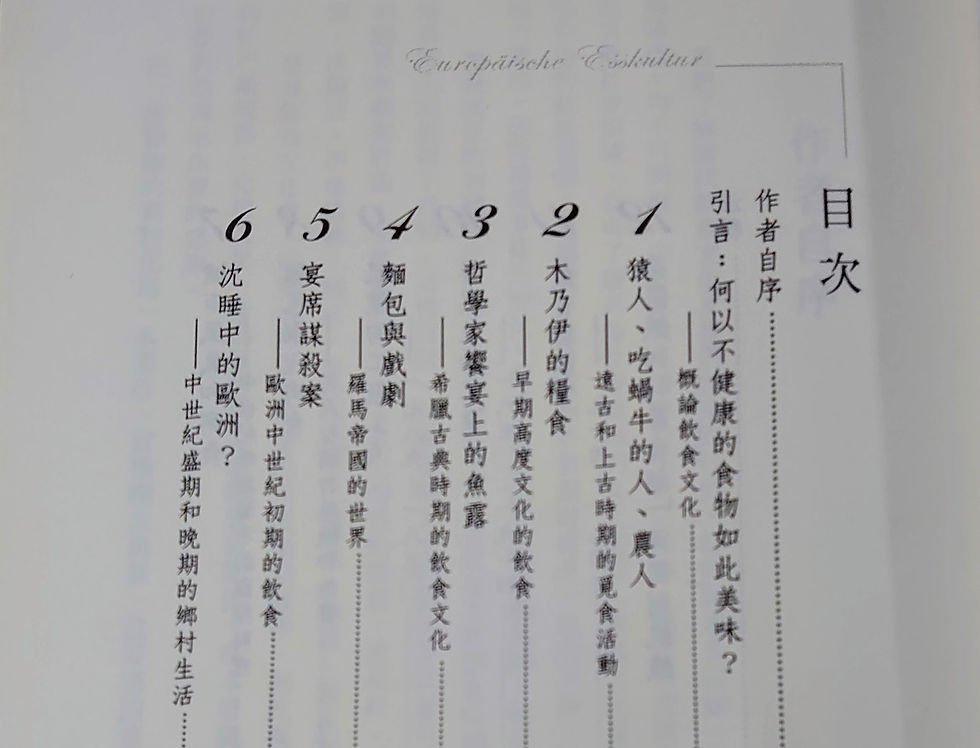 Europäische Esskultur
目次
作者自序
引言：何以不健康的食物如此美味？
——概論飲食文化
1 猿人、吃蝸牛的人、農人
——遠古和上古時期的覓食活動
2 木乃伊的糧食
——早期高度文化的飲食
3 哲學家饗宴上的魚露
——希臘古典時期的飲食文化
4 麵包與戲劇
——羅馬帝國的世界
5 宴席謀殺案
——歐洲中世紀初期的飲食
6 沈睡中的歐洲？
——中世紀盛期和晚期的鄉村生活